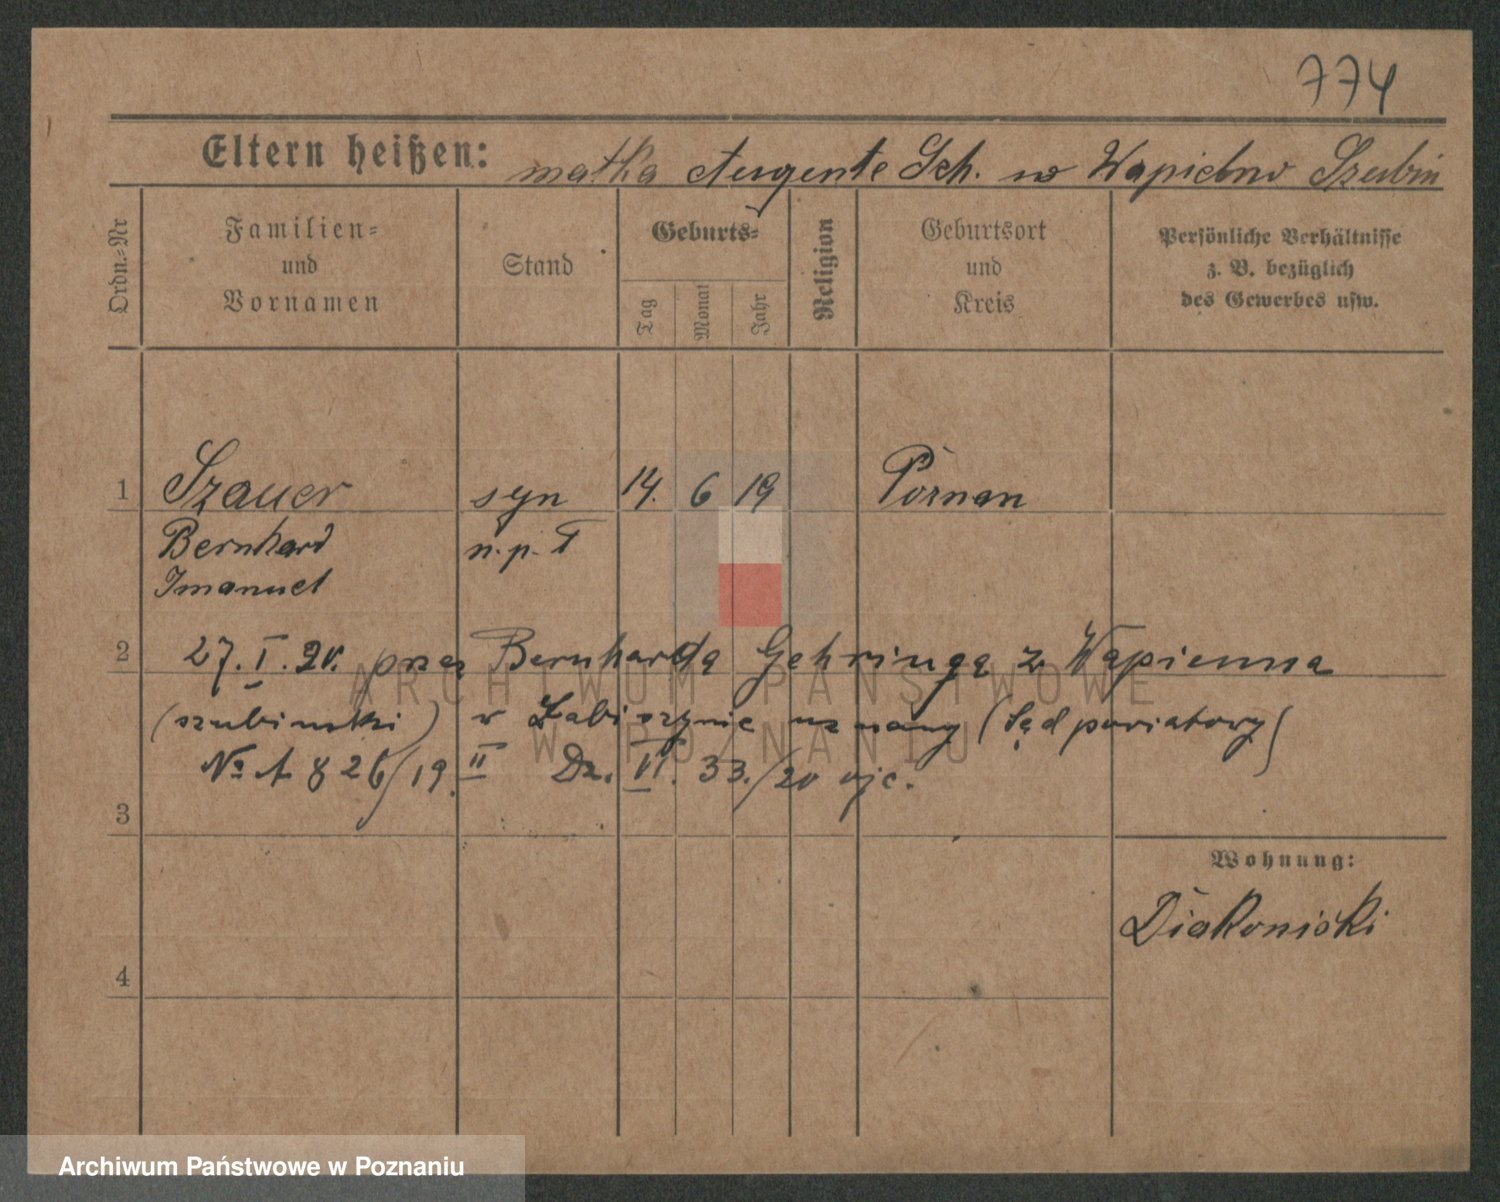 774
Eltern heißen: matka Sch. w Szubin
Ordn.-Nr
Familien-
und
Vornamen
Stand
Geburts-
Tag
Monat
Jahr
Religion
Geburtsort
und
Kreis
Persönliche Verhältnisse
z. B. bezüglich
des Gewerbes usw.
1 Szauer syn 14. 6 19 Poznan
Bernhard n. p. T
Imanuel
2 27. I. 20. przez Bernharda Gehringa z Wapienna
(szubinski) w Łabiszynie uznany (Sąd powiatowy)
№ A 826/19. II Dz. VI. 33./20 ojc.
3
Wohnung:
Diakoniski
4
ARCHIWUM PAŃSTWOWE
W POZNANIU
Archiwum Państwowe w Poznaniu